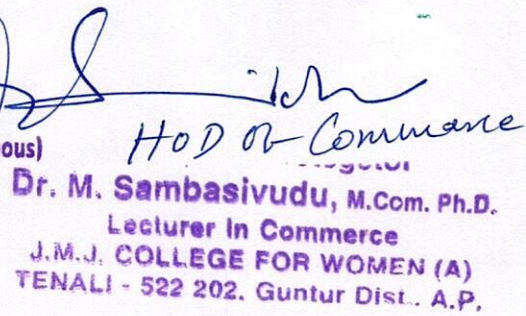 ous)
HOD of Commerce
Dr. M. Sambasivudu, M.Com. Ph.D.
Lecturer In Commerce
J.M.J. COLLEGE FOR WOMEN (A)
TENALI - 522 202. Guntur Dist.. A.P.